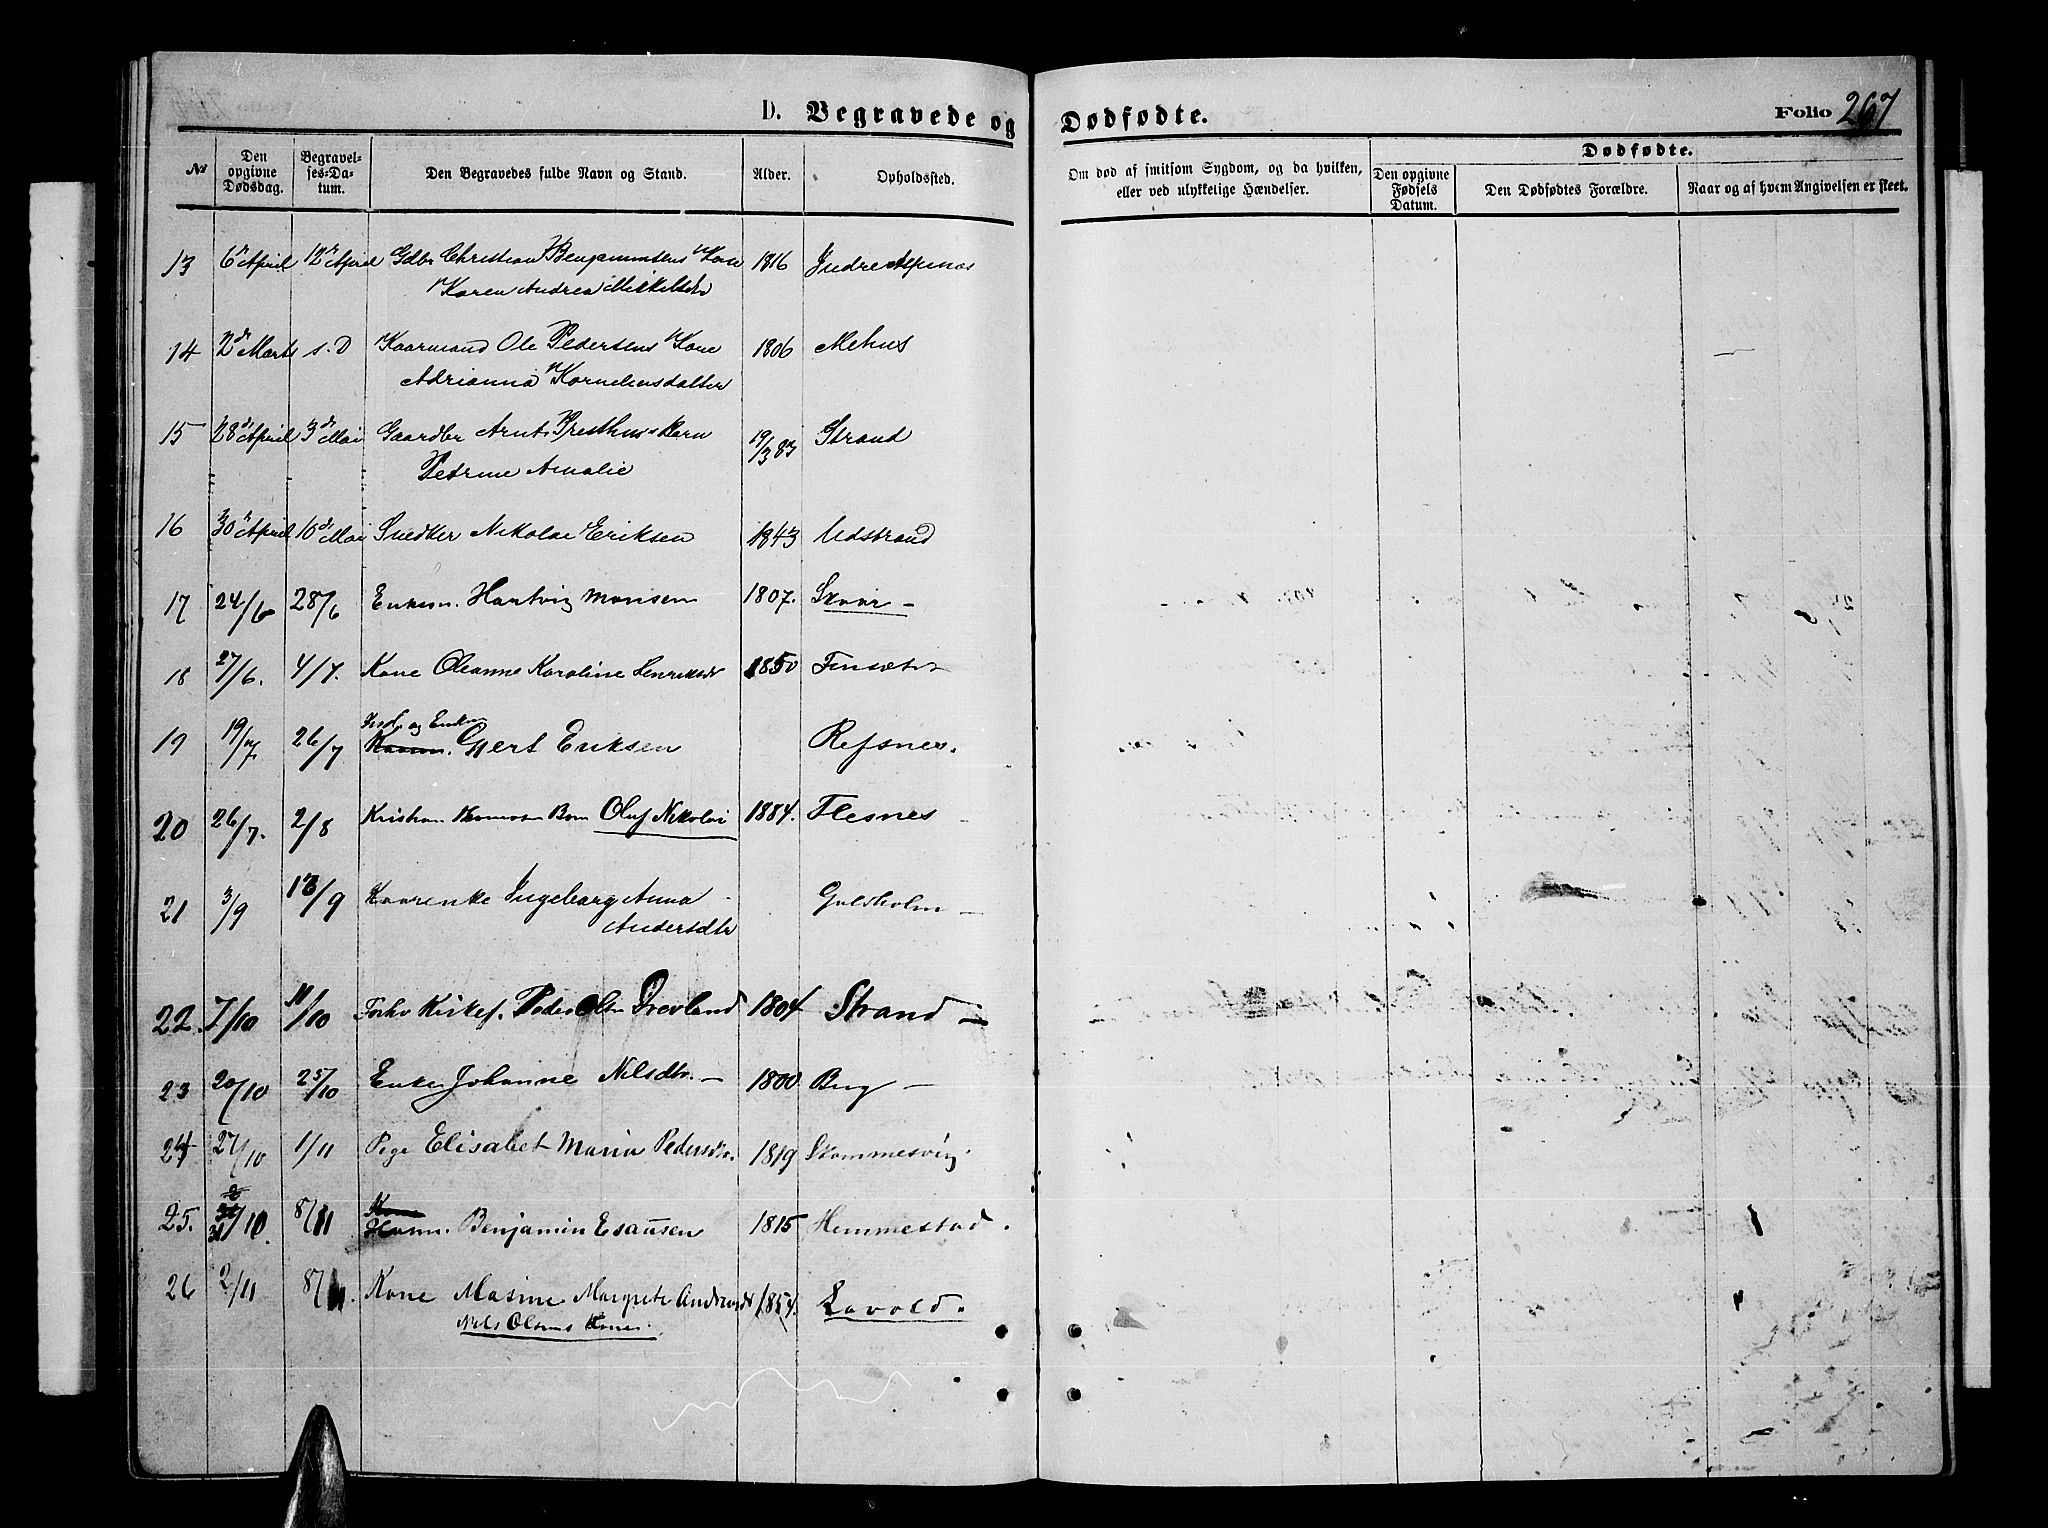 D. Begravede og Dødfødte.
Folio 267
No
Den opgivne Dødsdag.
Begravelses-Datum.
Den Begravedes fulde Navn og Stand.
Alder.
Opholdssted.
Om død af smitsom Sygdom, og da hvilken, eller ved ulykkelige Hændelser.
Dødfødte.
Den opgivne Fødsels Datum.
Den Dødfødtes Forældre.
Naar og af hvem Angivelsen er skeet.
13 6te April 12te April Gdbr Christian Benjaminsens Kone 1816 Indre Alpenæs
Karen Andrea Mikkelsdr
14 2dn Marts s. D Kaarmand Ole Pedersens Kone 1806 Mehus
Adrianna Korneliusdatter
15 28de April 3de Mai Gaardbr Arnt Presthus Barn 19/3 87 Strand
Petrine Amalie
16 30te April 10de Mai Snedker Nikolai Eriksen 1843 Udstrand
17 24/6 28/6 Enkem. Hartvig Monsen 1807. Skaar -
18 27/6. 4/7. Kone Oleanne Karoline Henriksdr 1850 Finsæter
19 19/7 26/7 Gjert Eriksen Refsnes.
20 26/7. 2/8 Kristian Barn Oluf Nikolai 1884. Flesnes
21 3/9 13/9 Kaarenke Ingeborg Anna Gulsholm -
Andersdtr
22. 7/10 11/10 Forhv Kirkes. Peder Olsn Drevland 1804 Strand -
23 20/10 25/10 Enke Johanne Nilsdtr. - 1800 Berg -
24 27/10 1/11 Pige Elisabet Maria Pedersdtr. 1819 Skommesvig.
25. 31/10. 8/11 Benjamin Esausen 1815 Hemmestad.
26 2/11 8/11. Kone Masine Margrete Andreasdt 1854. Lavold.
Nils Olsens Kone.